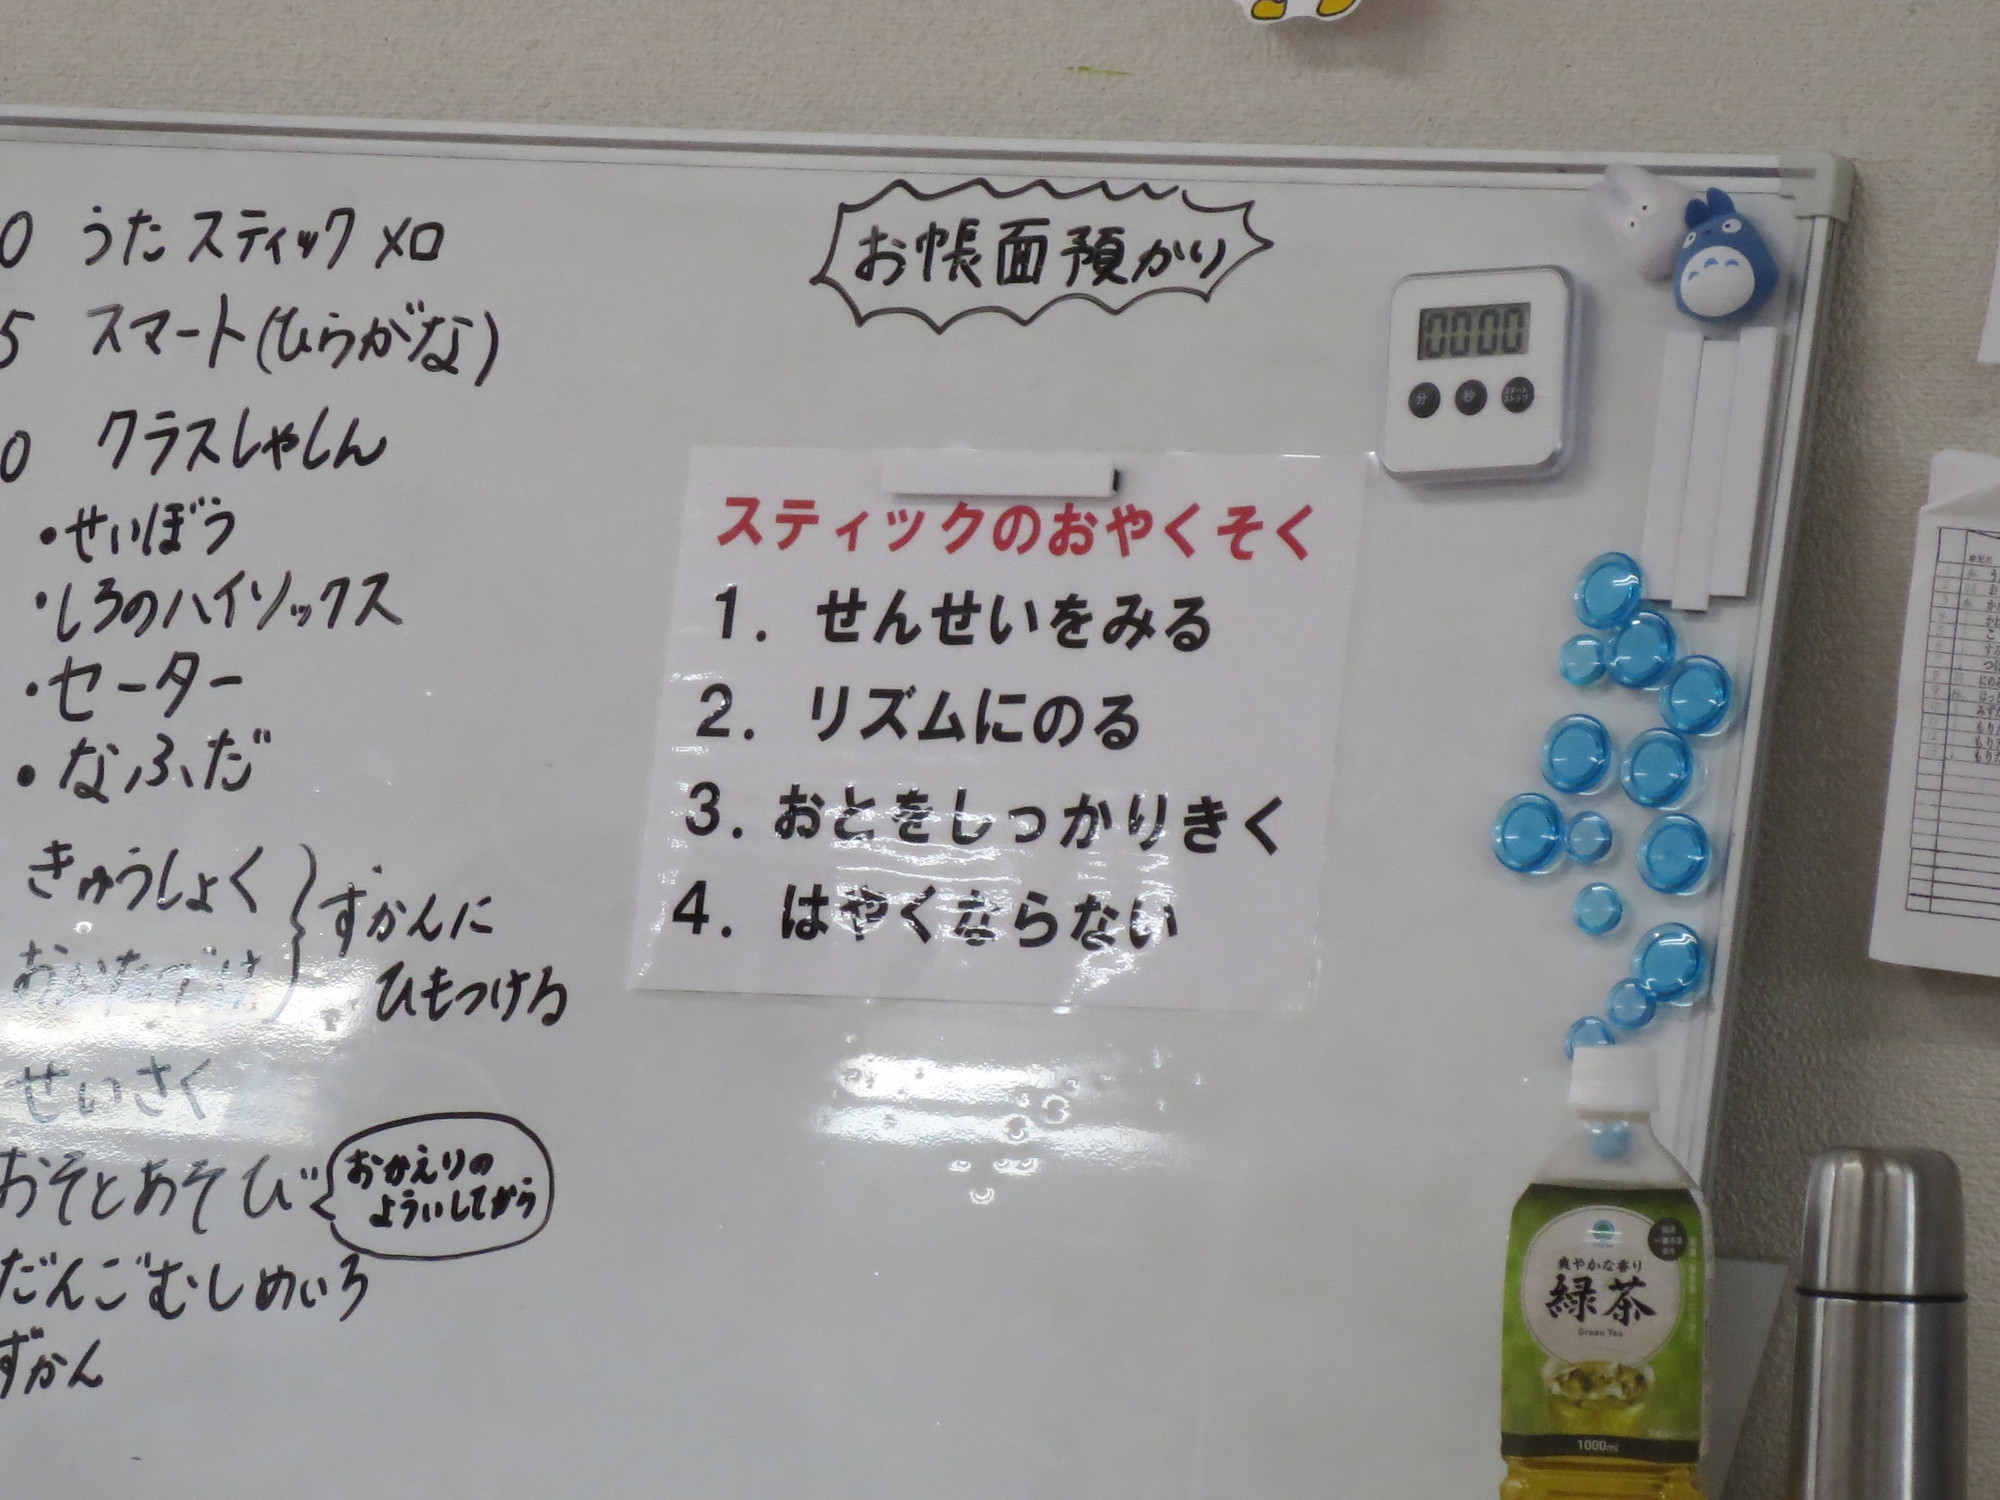 0 うた スティック メロ
5 スマート(ひらがな)
0 クラスしゃしん
・せいぼう
・しろのハイソックス
・セーター
・なふだ
きゅうしょく
おかたづけ
ずかんに
ひもつける
せいさく
おそとあそび
おかえりの
よういしてから
だんごむしめいろ
ずかん
お帳面預かり
0000
分 秒 スタート
ストップ
スティックのおやくそく
1. せんせいをみる
2. リズムにのる
3. おとをしっかりきく
4. はやくならない
爽やかな香り
緑茶
Green Tea
1000ml